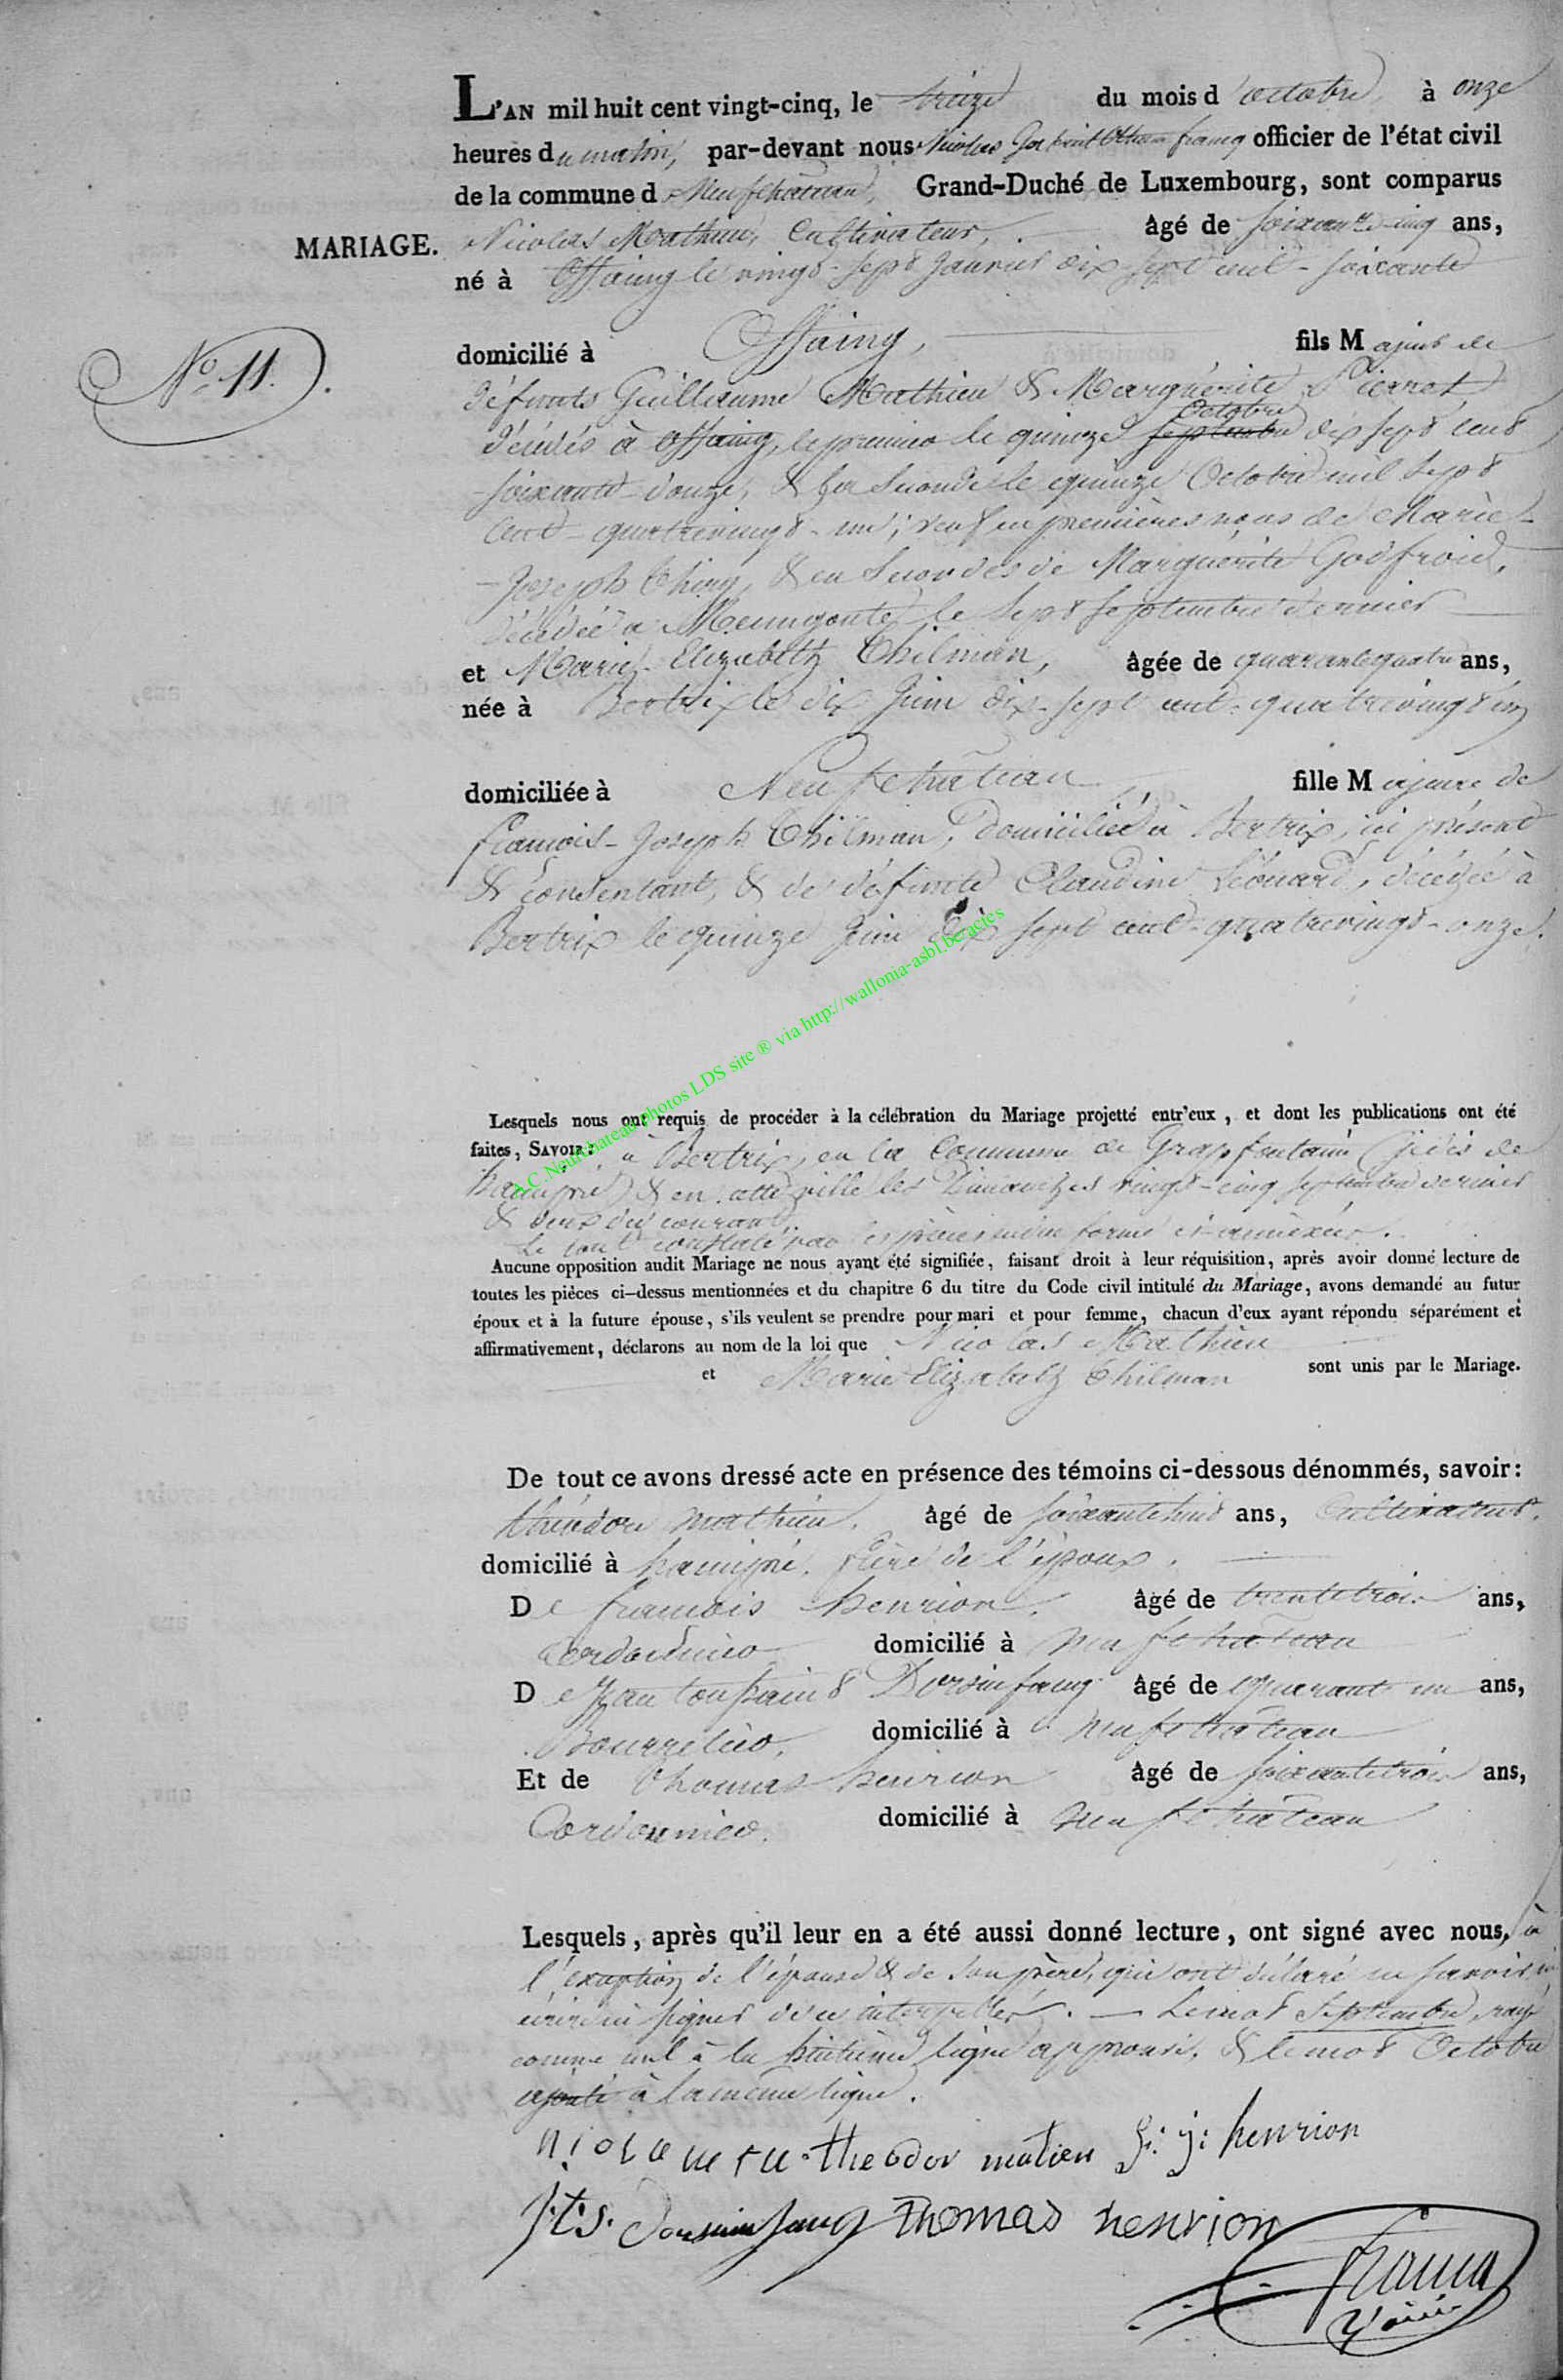 L'AN mil huit cent vingt-cinq, le treize du mois d'octobre, à onze
heures du matin, par-devant nous Nicolas officier de l'état civil
de la commune de Neufchateau, Grand-Duché de Luxembourg, sont comparus
MARIAGE.
Nicolas Mathieu, Cultivateur, âgé de soixante-cinq ans,
né à Offaing le vingt-sept Janvier dix-sept cent-soixante
N° 11.
domicilié à Offaing, fils Majeur de
défunts Guillaume Mathieu & Marguérite Pierret
décédés à Offaing, le premier le quinze septembre Octobre dix sept cent
soixante-douze, & la seconde le quinze Octobre mil sept
cent-quatrevingt-un; veuf en premières noces de Marie-
Joseph Thiry, & en secondes de Marguérite Godfroid,
décédée à le sept septembre dernier
et Marie-Elizabeth Thilman, âgée de quarante quatre ans,
née à Bertrix le dix Juin dix-sept cent-quatrevingt un
domiciliée à Neufchateau, fille Majeure de
francois-Joseph Thilman, domicilié à Bertrix, ici présent
& consentant, & de défunte Claudine Léonard, décédée à
Bertrix le quinze Juin dix sept cent-quatrevingt-onze.
A.C.Neufchateau photos LDS site ® via http://wallonia-asbl.be/actes
Lesquels nous ont requis de procéder à la célébration du Mariage projetté entr'eux, et dont les publications ont été
faites, SAVOIR: à Bertrix, en la Commune de Grapfontaine (de
hamipré) & en cette ville les Dimanches vingt-cinq septembre dernier
& deux du courant.
Le tout constaté par les pièces en forme ci-annexées.
Aucune opposition audit Mariage ne nous ayant été signifiée, faisant droit à leur réquisition, après avoir donné lecture de
toutes les pièces ci-dessus mentionnées et du chapitre 6 du titre du Code civil intitulé du Mariage, avons demandé au futur
époux et à la future épouse, s'ils veulent se prendre pour mari et pour femme, chacun d'eux ayant répondu séparément et
affirmativement, déclarons au nom de la loi que Nicolas Mathieu
et Marie Elizabeth Thilman sont unis par le Mariage.
De tout ce avons dressé acte en présence des témoins ci-dessous dénommés, savoir:
théodore Mathieu, âgé de soixante huit ans, Cultivateur,
domicilié à hamipré, frère de l'époux.
De francois henrion, âgé de trente trois ans,
Cordonnier domicilié à Neufchateau
De Jean toussaint Dorsinfang âgé de quarante un ans,
Bourrelier, domicilié à Neufchateau
Et de thomas henrion âgé de soixante trois ans,
Cordonnier. domicilié à Neufchateau
Lesquels, après qu'il leur en a été aussi donné lecture, ont signé avec nous, à
l'exception de l'épouse & de son père, qui ont déclaré ne savoir ni
écrire ni signer de ce interpellés. — Le mot Septembre, rayé
comme nul à la huitième ligne approuvé, & le mot Octobre
ajouté à la même ligne.
theodor matieu henrion
J.t.s. Dorsinfang Thomas henrion